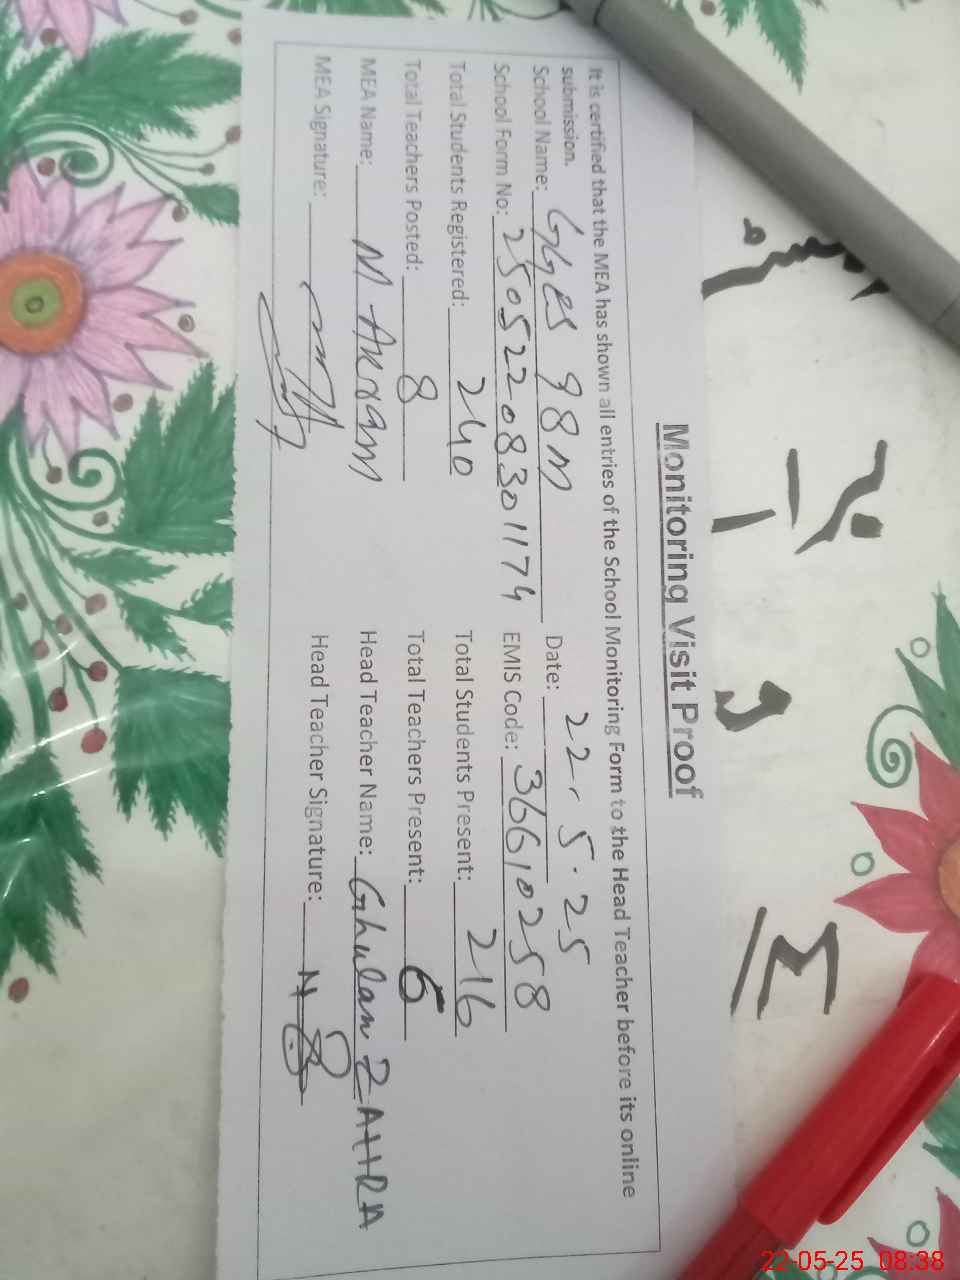 Monitoring Visit Proof
It is certified that the MEA has shown all entries of the School Monitoring Form to the Head Teacher before its online
submission.
School Name: GGES 98M Date: 22.5.25
School Form No: 25052208301174 EMIS Code: 36610258
Total Students Registered: 240 Total Students Present: 216
Total Teachers Posted: 8 Total Teachers Present: 6
MEA Name: M Akram Head Teacher Name: Ghulam ZAHRA
MEA Signature: Head Teacher Signature:
22-05-25 08:38